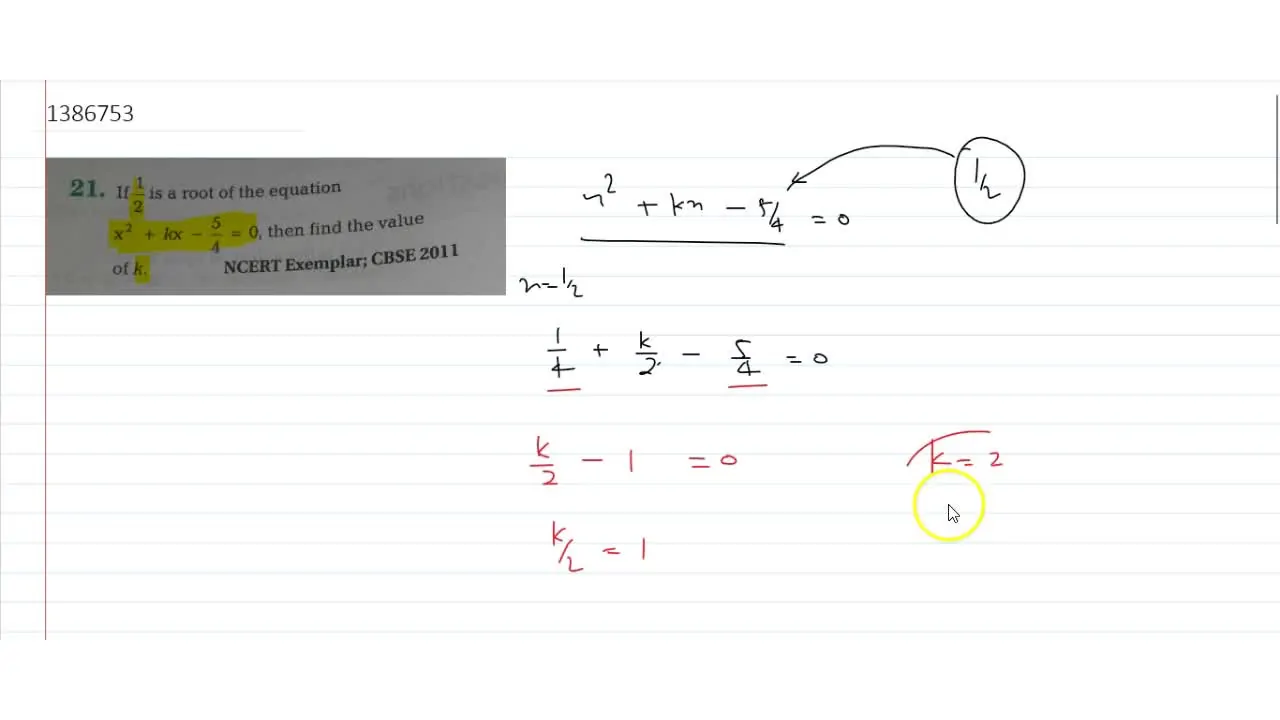 1386753
21. If 1/2 is a root of the equation
x² + kx − 5/4 = 0, then find the value
of k.
NCERT Exemplar; CBSE 2011
x² + kx − 5/4 = 0
1/2
x = 1/2
1/4 + k/2 − 5/4 = 0
k/2 − 1 = 0
k = 2
k/2 = 1